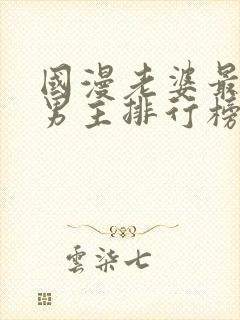 國漫老婆最
男主排行榜
雲染七